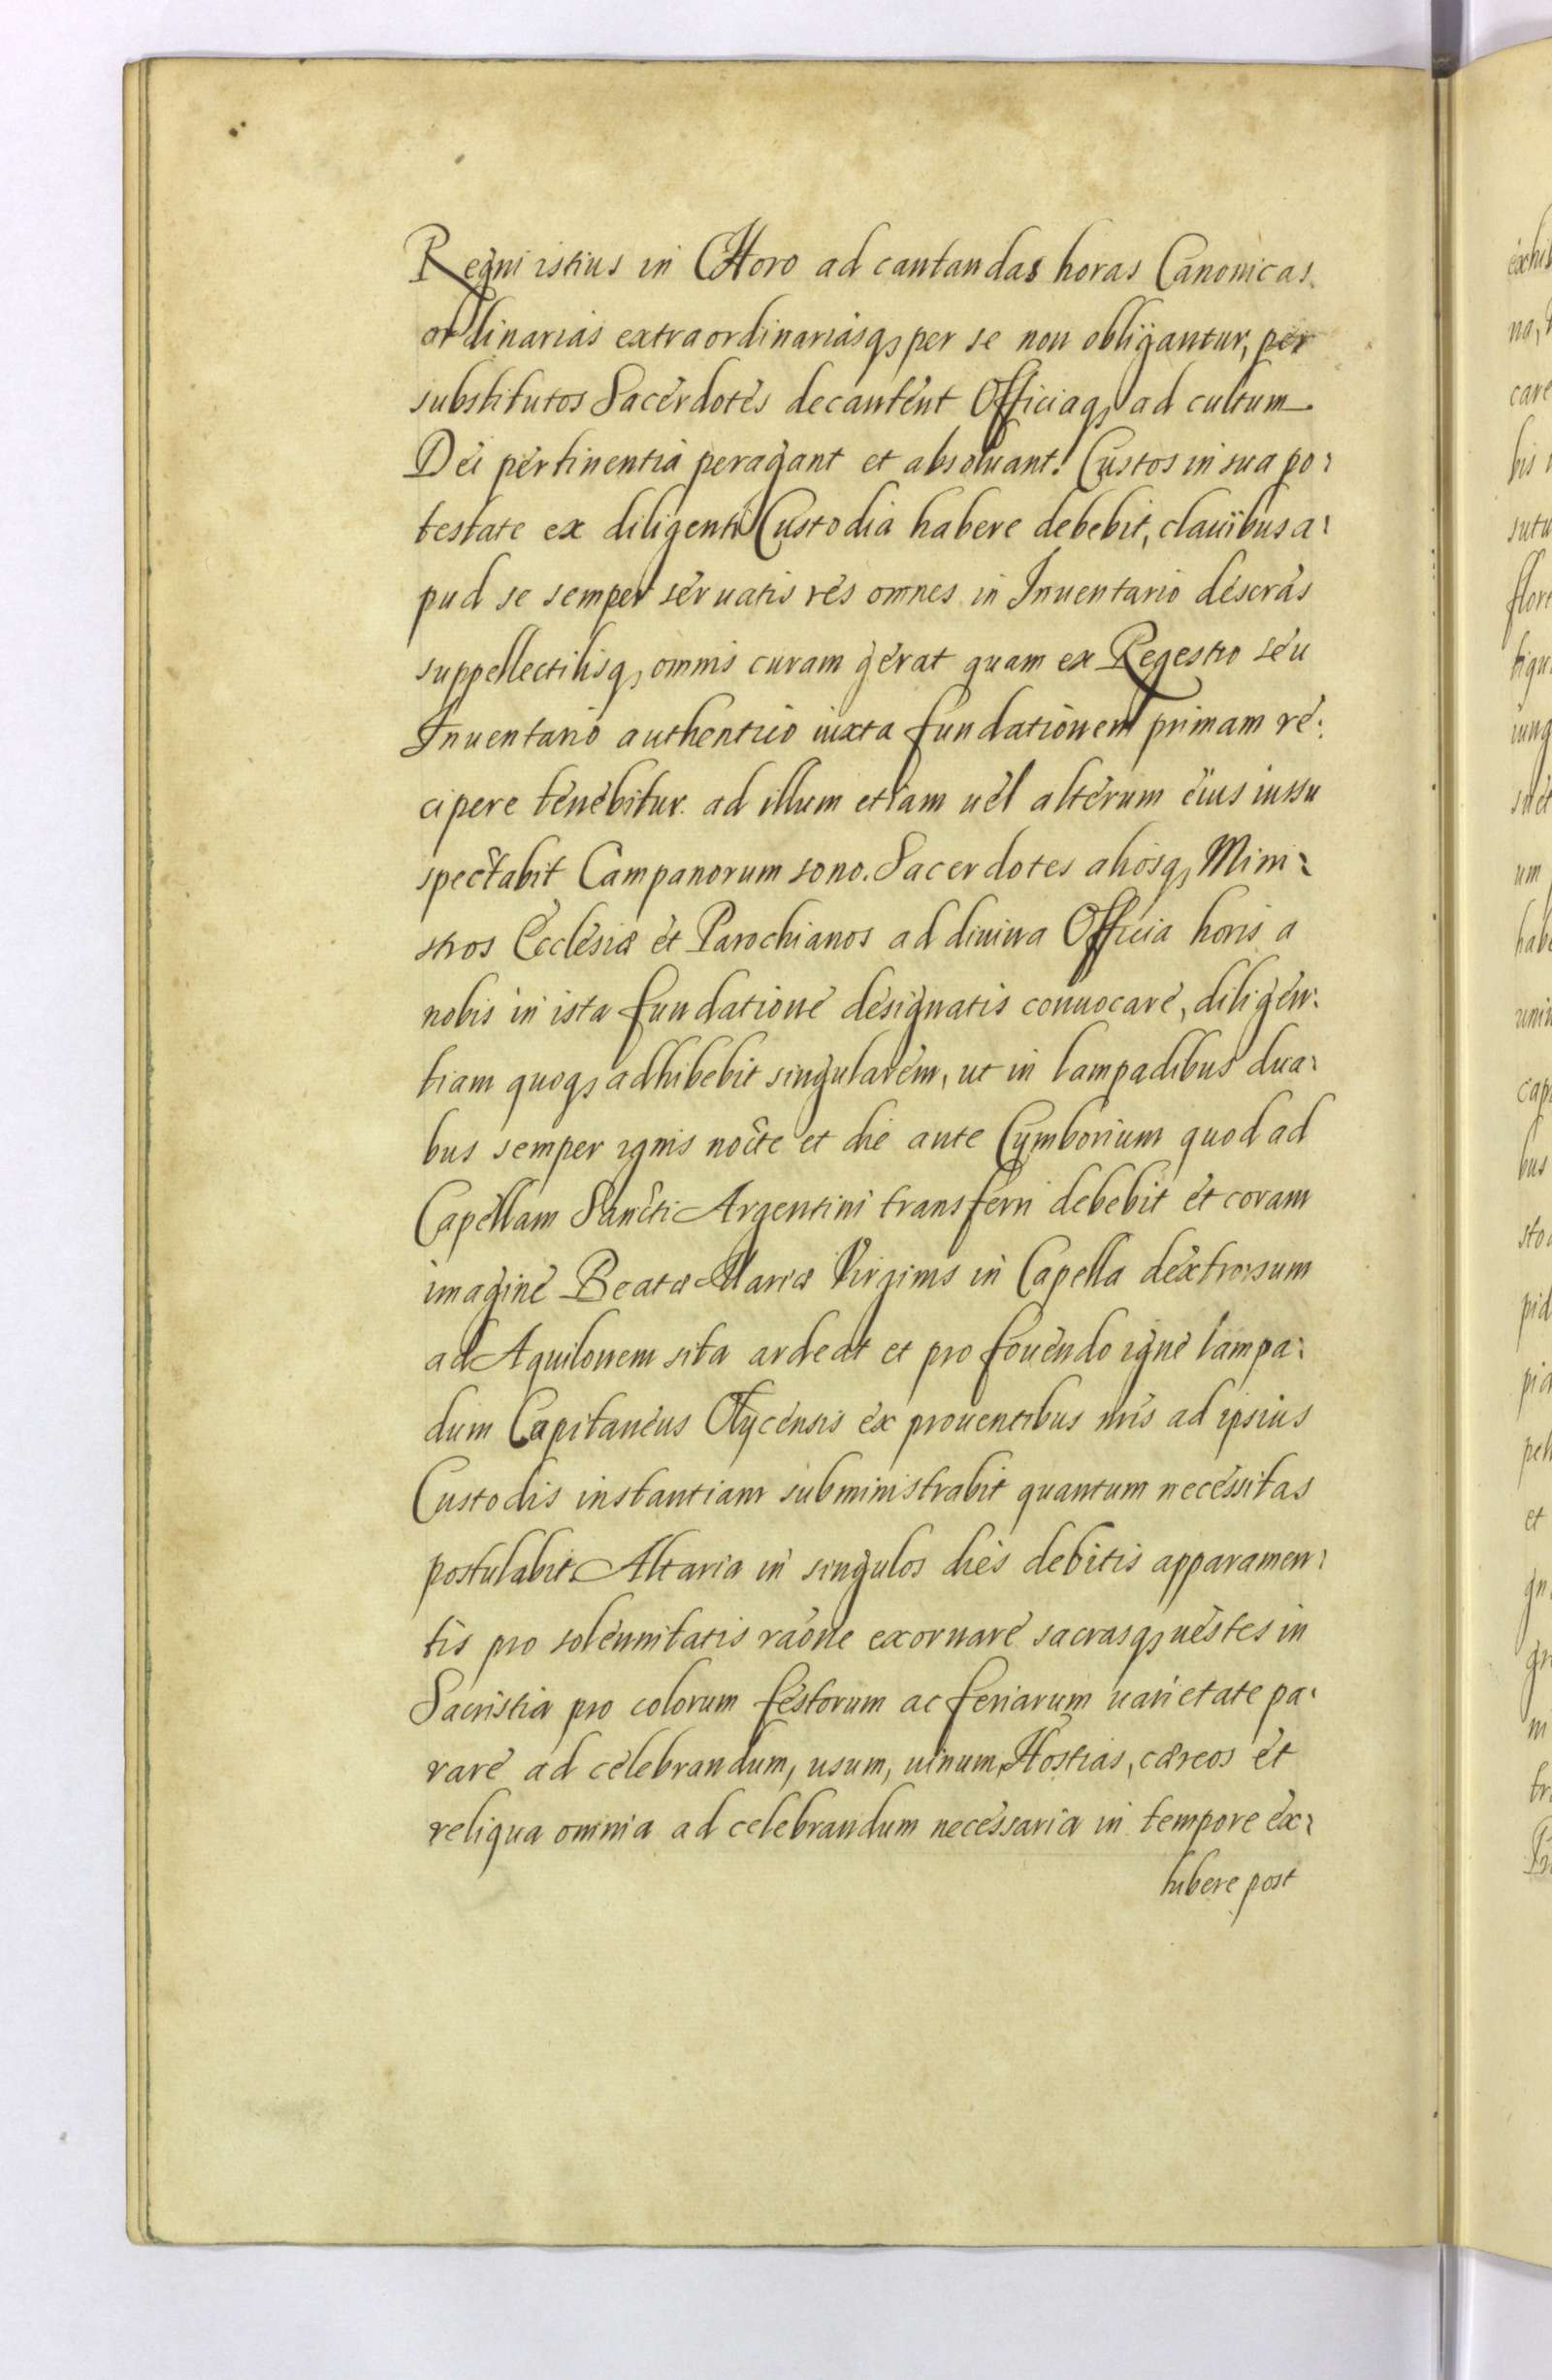 Regni istius in CHoro ad cantandas horas Canonicas
ordinarias extraordinariasq₃ per se non obligantur, per
substitutos Sacerdotes decantent Officiaq₃ ad cultum
Dei pertinentia peragant et absoluant. Custos in sua po:
testate ex diligenti Custodia habere debebit, clauibus a:
pud se semper seruatis res omnes in Inuentario descras
suppellectilisq₃ omnis curam gerat quam ex Regestro seu
Inuentario authentico iuxta fundationem primam re:
cipere tenebitur. ad illum etiam uel alterum eius iussu
spectabit Campanorum sono. Sacerdotes aliosq₃ Mini:
stros Ecclesiæ et Parochianos ad diuina Officia horis a
nobis in ista fundatione designatis conuocare, diligen:
tiam quoq₃ adhibebit singularem, ut in lampadibus dua:
bus semper ignis nocte et die ante Cymborium quod ad
Capellam Sancti Argentini transferri debebit et coram
imagine Beatæ Mariæ Virginis in Capella dextrorsum
ad Aquilonem sita ardeat et pro fouendo igne lampa:
dum Capitaneus Olycensis ex prouentibus nris ad ipsius
Custodis instantiam subministrabit quantum necessitas
postulabit. Altaria in singulos dies debitis apparamen:
tis pro solennitatis raone exornare sacrasq₃ uestes in
Sacristia pro colorum festorum ac feriarum uarietate pa:
rare ad celebrandum, usum, uinum, Hostias, cæreos et
reliqua omnia ad celebrandum necessaria in tempore ex:
hibere post